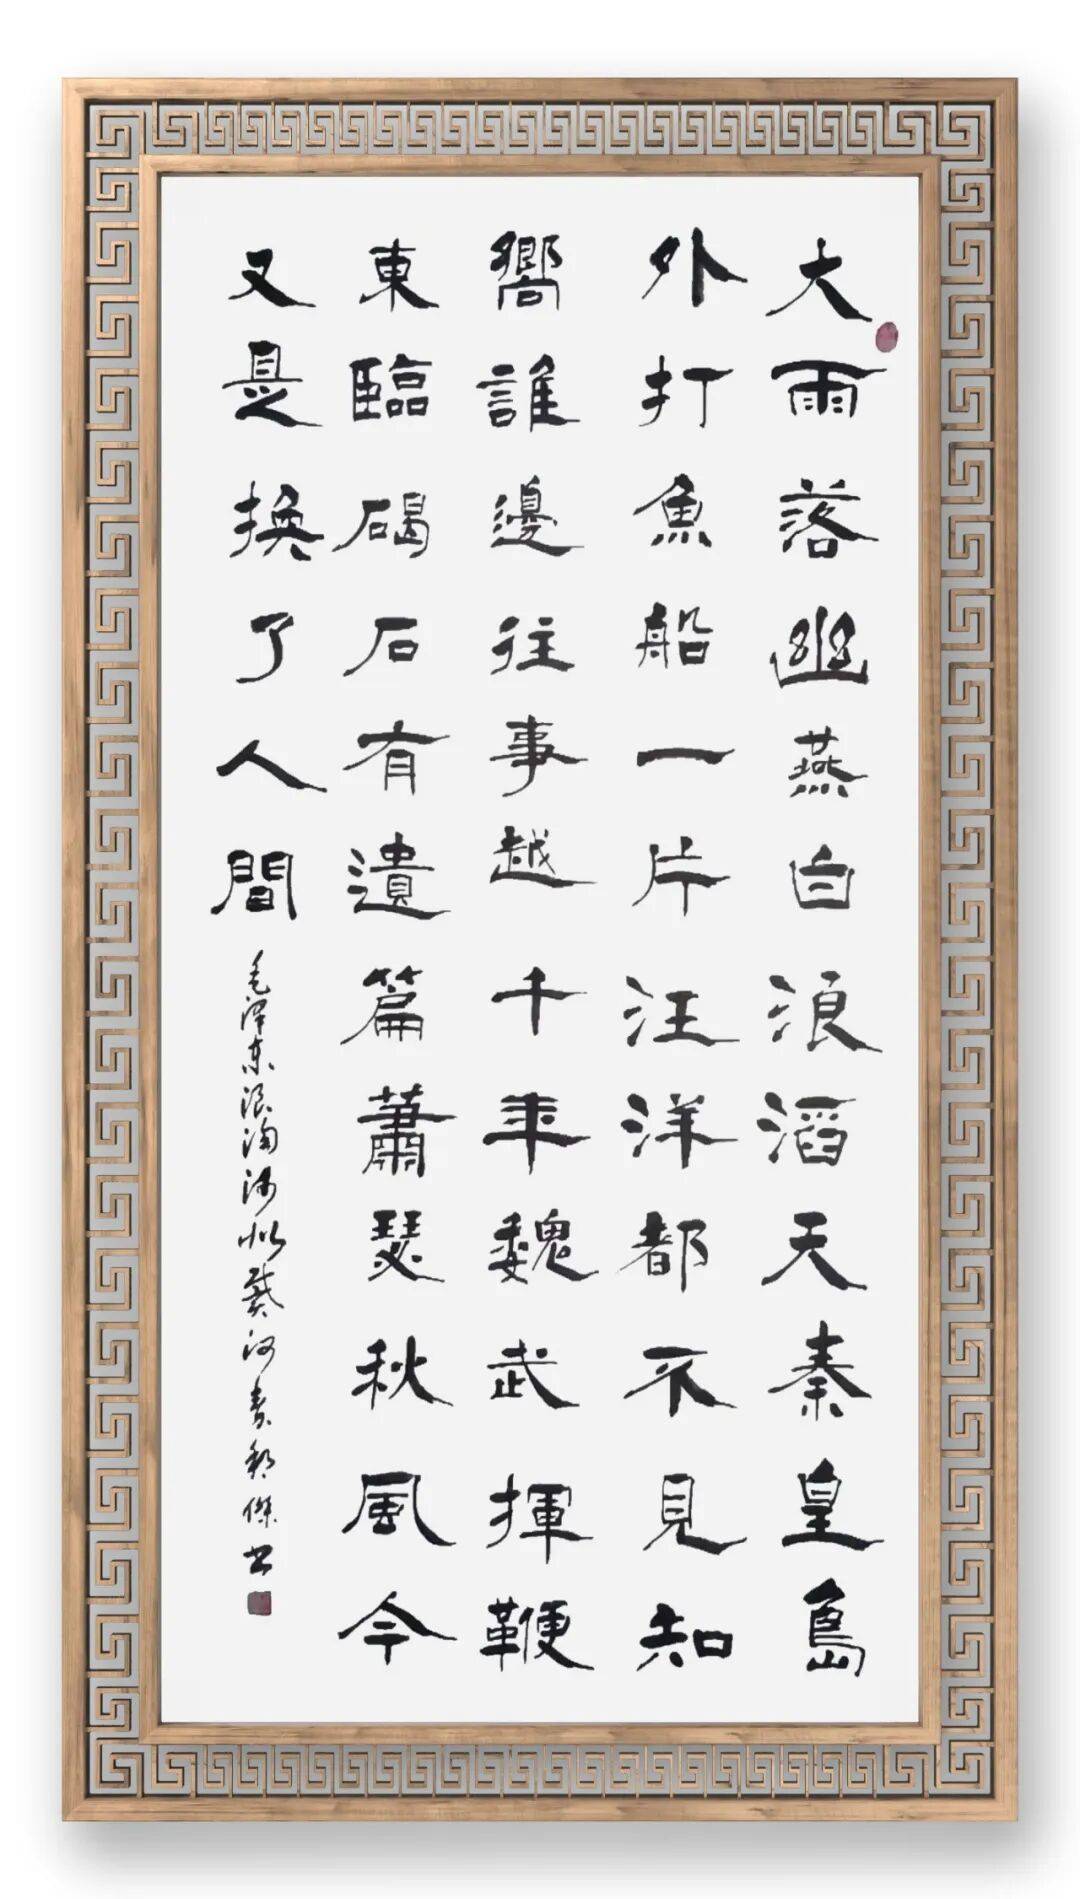 大雨落幽燕白浪滔天秦皇島
外打魚船一片汪洋都不見知
嚮誰邊往事越千年魏武揮鞭
東臨碣石有遺篇蕭瑟秋風今
又是換了人間
毛泽东浪淘沙北戴河
傑书